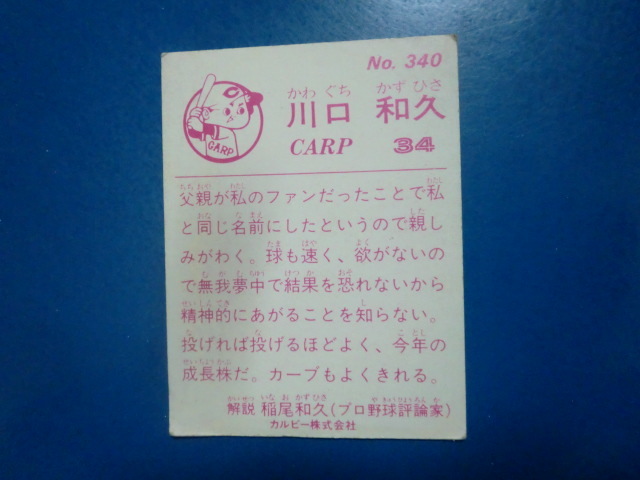 No. 340
かわ ぐち かず ひさ
川口 和久
CARP
CARP 34
父親が私のファンだったことで私
と同じ名前にしたというので親し
みがわく。球も速く、欲がないの
で無我夢中で結果を恐れないから
精神的にあがることを知らない。
投げれば投げるほどよく、今年の
成長株だ。カーブもよくきれる。
解説 稲尾和久(プロ野球評論家)
カルビー株式会社